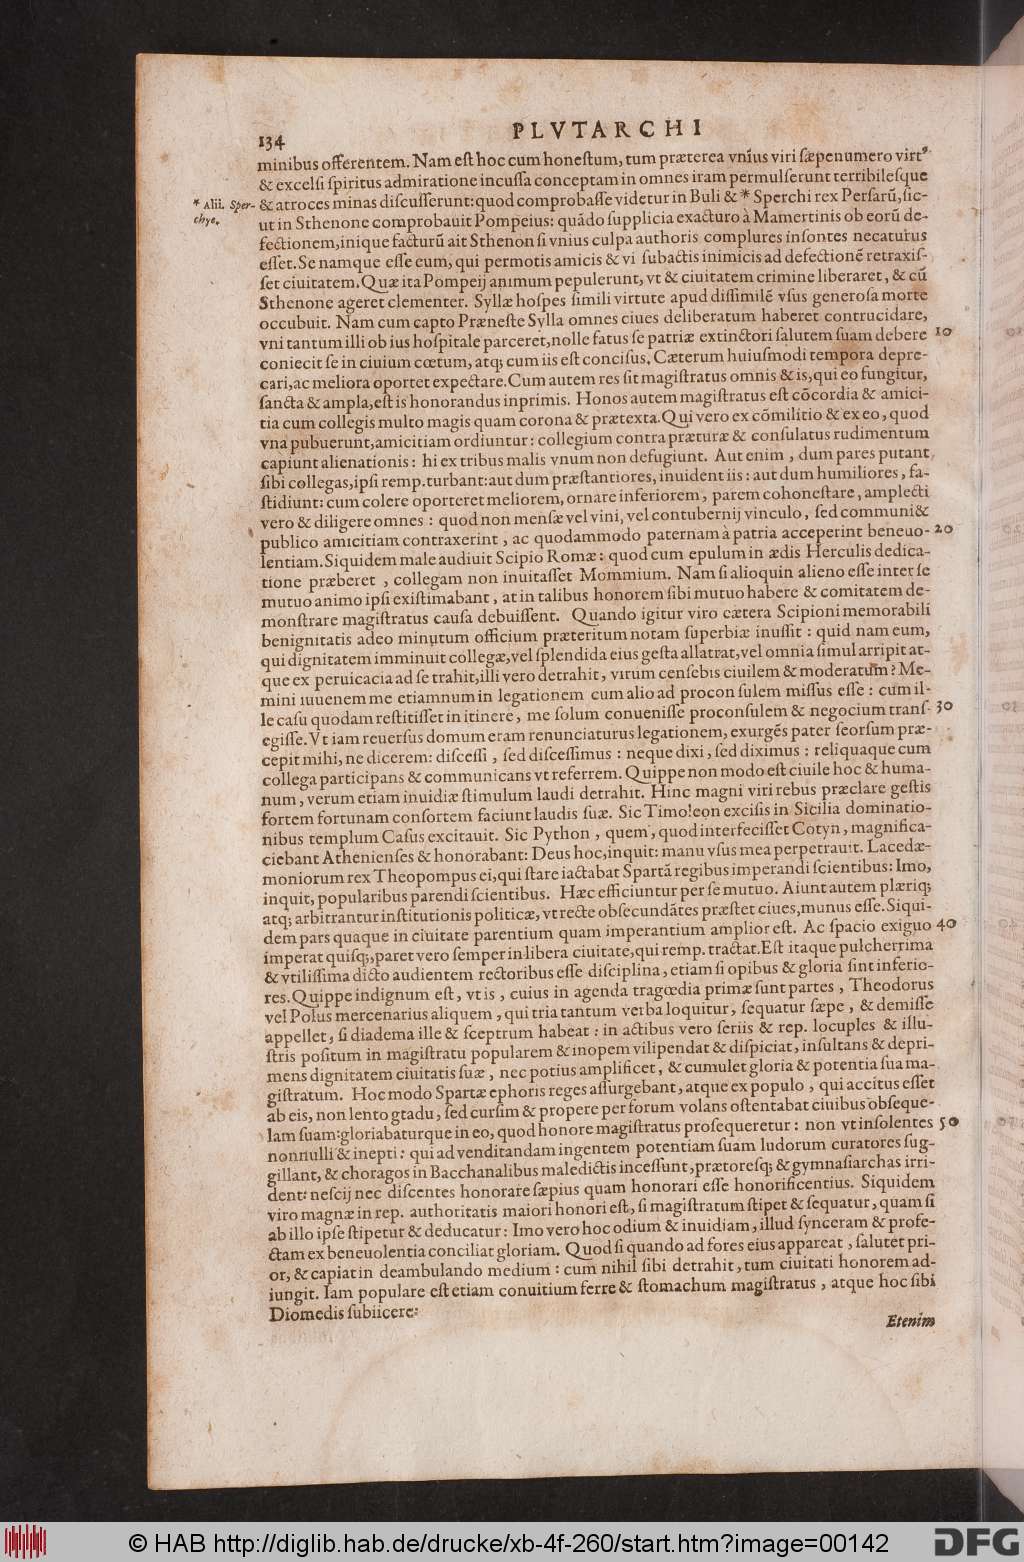 134
PLVTARCHI
minibus offerentem. Nam eſt hoc cum honeſtum, tum præterea vnius viri ſæpenumero virt⁹
& excelſi ſpiritus admiratione incuſſa conceptam in omnes iram permulſerunt terribileſque
* Alii. Sper-
chye.
& atroces minas diſcuſſerunt: quod comprobaſſe videtur in Buli & * Sperchi rex Perſarũ, ſic-
ut in Sthenone comprobauit Pompeius: quãdo ſupplicia exacturo à Mamertinis ob eorũ de-
fectionem, inique facturũ ait Sthenon ſi vnius culpa authoris complures inſontes necaturus
eſſet. Se namque eſſe eum, qui permotis amicis & vi ſubactis inimicis ad defectionẽ retraxiſ-
ſet ciuitatem. Quæ ita Pompeij animum pepulerunt, vt & ciuitatem crimine liberaret, & cũ
Sthenone ageret clementer. Syllæ hoſpes ſimili virtute apud diſſimilẽ vſus generoſa morte
occubuit. Nam cum capto Præneſte Sylla omnes ciues deliberatum haberet contrucidare,
vni tantum illi ob ius hoſpitale parceret, nolle fatus ſe patriæ extinctori ſalutem ſuam debere 10
coniecit ſe in ciuium cœtum, atq; cum iis eſt conciſus. Cæterum huiuſmodi tempora depre-
cari, ac meliora oportet expectare. Cum autem res ſit magiſtratus omnis & is, qui eo fungitur,
ſancta & ampla, eſt is honorandus inprimis. Honos autem magiſtratus eſt cõcordia & amici-
tia cum collegis multo magis quam corona & prætexta. Qui vero ex cõmilitio & ex eo, quod
vna pubuerunt, amicitiam ordiuntur: collegium contra præturæ & conſulatus rudimentum
capiunt alienationis: hi ex tribus malis vnum non defugiunt. Aut enim, dum pares putant
ſibi collegas, ipſi remp. turbant: aut dum præſtantiores, inuident iis: aut dum humiliores, fa-
ſtidiunt: cum colere oporteret meliorem, ornare inferiorem, parem cohoneſtare, amplecti
vero & diligere omnes: quod non menſæ vel vini, vel contubernij vinculo, ſed communi &
publico amicitiam contraxerint, ac quodammodo paternam à patria acceperint beneuo- 20
lentiam. Siquidem male audiuit Scipio Romæ: quod cum epulum in ædis Herculis dedica-
tione præberet, collegam non inuitaſſet Mommium. Nam ſi alioquin alieno eſſe inter ſe
mutuo animo ipſi exiſtimabant, at in talibus honorem ſibi mutuo habere & comitatem de-
monſtrare magiſtratus cauſa debuiſſent. Quando igitur viro cætera Scipioni memorabili
benignitatis adeo minutum officium præteritum notam ſuperbiæ inuſſit: quid nam eum,
qui dignitatem imminuit collegæ, vel ſplendida eius geſta allatrat, vel omnia ſimul arripit at-
que ex peruicacia ad ſe trahit, illi vero detrahit, virum cenſebis ciuilem & moderatum? Me-
mini iuuenem me etiamnum in legationem cum alio ad proconſulem miſſus eſſe: cum il-
le caſu quodam reſtitiſſet in itinere, me ſolum conueniſſe proconſulem & negocium tranſ- 30
egiſſe. Vt iam reuerſus domum eram renunciaturus legationem, exurgẽs pater ſeorſum præ-
cepit mihi, ne dicerem: diſceſſi, ſed diſceſſimus: neque dixi, ſed diximus: reliquaque cum
collega participans & communicans vt referrem. Quippe non modo eſt ciuile hoc & huma-
num, verum etiam inuidiæ ſtimulum laudi detrahit. Hinc magni viri rebus præclare geſtis
fortem fortunam conſortem faciunt laudis ſuæ. Sic Timoleon exciſis in Sicilia dominatio-
nibus templum Caſus excitauit. Sic Python, quem, quod interfeciſſet Cotyn, magnifica-
ciebant Athenienſes & honorabant: Deus hoc, inquit: manu vſus mea perpetrauit. Lacedæ-
moniorum rex Theopompus ei, qui ſtare iactabat Spartã regibus imperandi ſcientibus: Imo,
inquit, popularibus parendi ſcientibus. Hæc efficiuntur per ſe mutuo. Aiunt autem plæriq;
atq; arbitrantur inſtitutionis politicæ, vt recte obſecundãtes præſtet ciues, munus eſſe. Siqui-
dem pars quaque in ciuitate parentium quam imperantium amplior eſt. Ac ſpacio exiguo 40
imperat quiſq;, paret vero ſemper in libera ciuitate, qui remp. tractat. Eſt itaque pulcherrima
& vtiliſſima dicto audientem rectoribus eſſe diſciplina, etiam ſi opibus & gloria ſint inferio-
res. Quippe indignum eſt, vt is, cuius in agenda tragœdia primæ ſunt partes, Theodorus
vel Polus mercenarius aliquem, qui tria tantum verba loquitur, ſequatur ſæpe, & demiſſe
appellet, ſi diadema ille & ſceptrum habeat: in actibus vero ſeriis & rep. locuples & illu-
ſtris poſitum in magiſtratu popularem & inopem vilipendat & diſpiciat, inſultans & depri-
mens dignitatem ciuitatis ſuæ, nec potius amplificet, & cumulet gloria & potentia ſua ma-
giſtratum. Hoc modo Spartæ ephoris reges aſſurgebant, atque ex populo, qui accitus eſſet
ab eis, non lento gtadu, ſed curſim & propere per forum volans oſtentabat ciuibus obſeque-
lam ſuam: gloriabaturque in eo, quod honore magiſtratus proſequeretur: non vt inſolentes 50
nonnulli & inepti: qui ad venditandam ingentem potentiam ſuam ludorum curatores ſug-
gillant, & choragos in Bacchanalibus maledictis inceſſunt, prætoreſq; & gymnaſiarchas irri-
dent: neſcij nec diſcentes honorare ſæpius quam honorari eſſe honorificentius. Siquidem
viro magnæ in rep. authoritatis maiori honori eſt, ſi magiſtratum ſtipet & ſequatur, quam ſi
ab illo ipſe ſtipetur & deducatur: Imo vero hoc odium & inuidiam, illud ſynceram & profe-
ctam ex beneuolentia conciliat gloriam. Quod ſi quando ad fores eius appareat, ſalutet pri-
or, & capiat in deambulando medium: cum nihil ſibi detrahit, tum ciuitati honorem ad-
iungit. Iam populare eſt etiam conuitium ferre & ſtomachum magiſtratus, atque hoc ſibi
Diomedis ſubiicere:
Etenim
© HAB http://diglib.hab.de/drucke/xb-4f-260/start.htm?image=00142
DFG